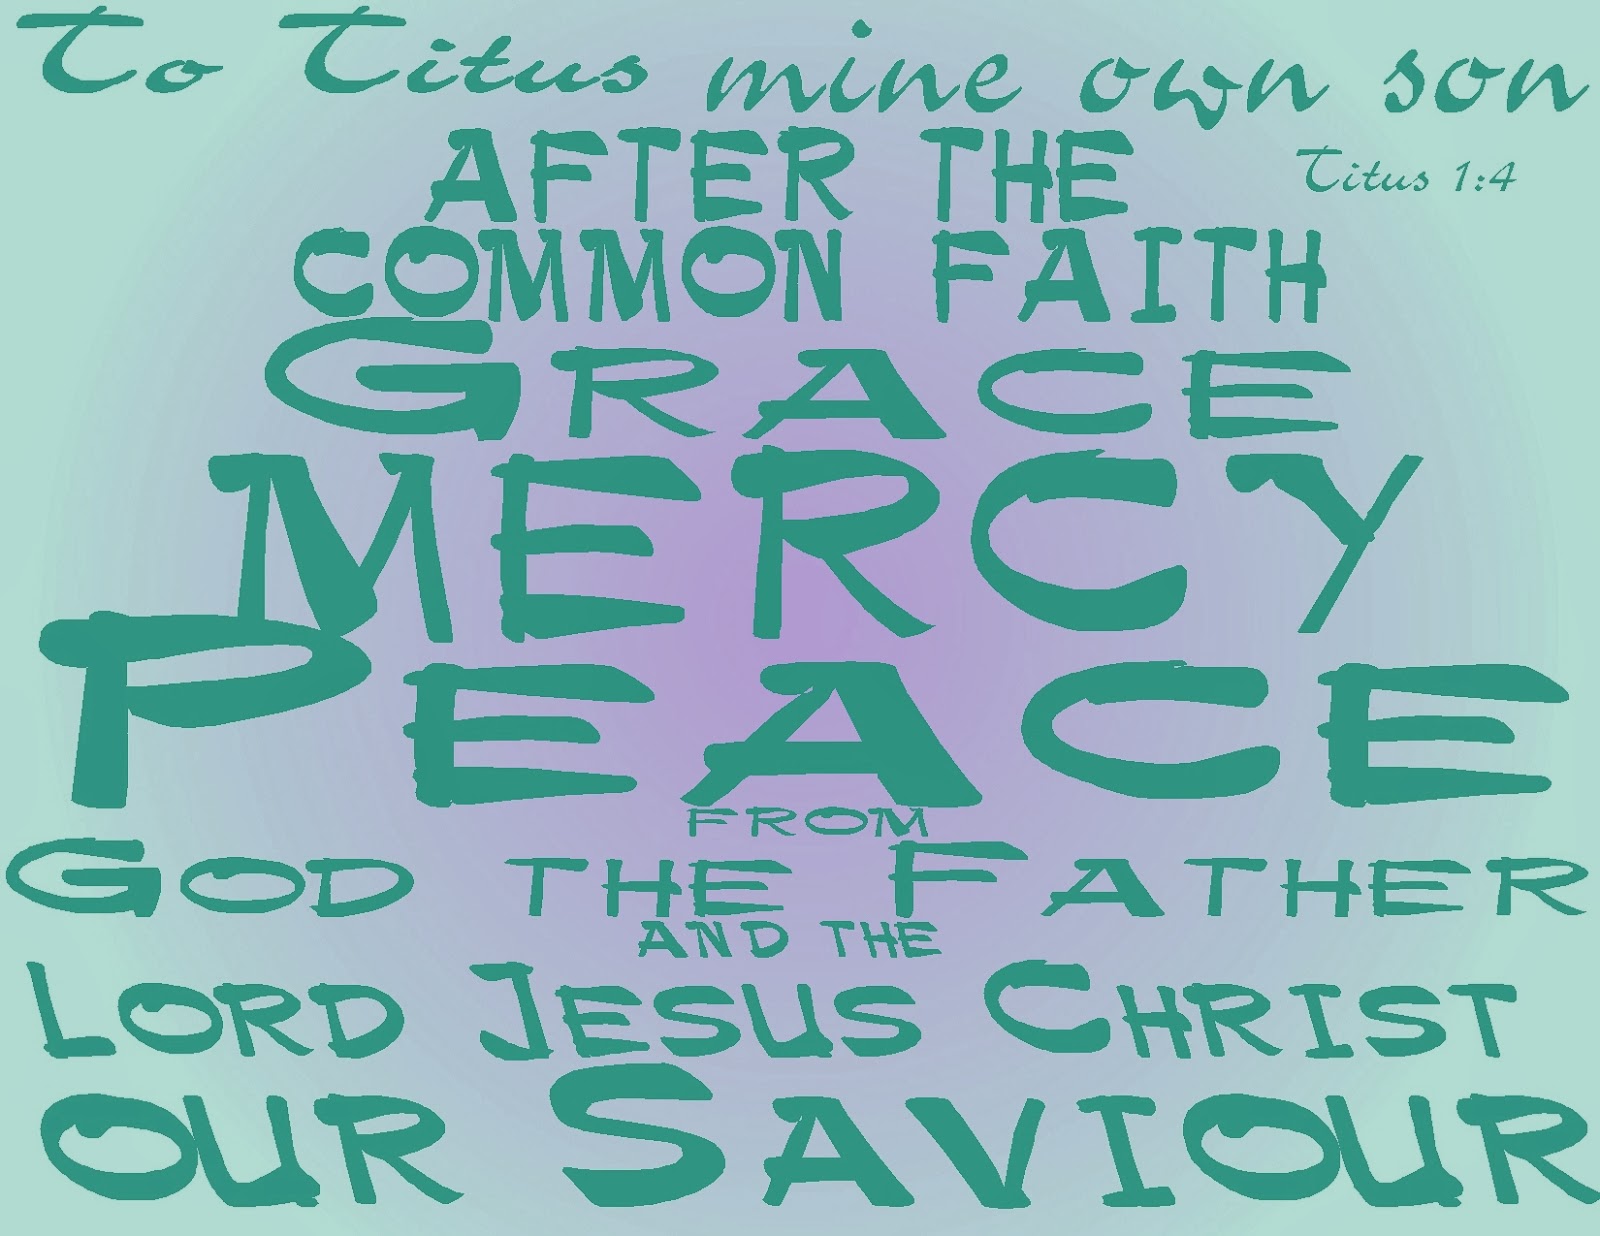 To Titus mine own son
AFTER THE
Titus 1:4
COMMON FAITH
GRACE
MERCY
PEACE
FROM
GOD THE FATHER
AND THE
LORD JESUS CHRIST
OUR SAVIOUR